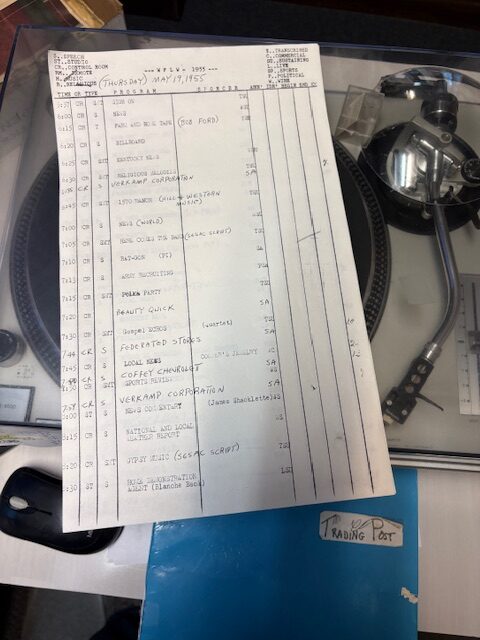 S..SPEECH
ST..STUDIO
CR..CONTROL ROOM
RM..REMOTE
M..MUSIC
R..RELIGIOUS
--- W F L W - 1955 ---
(THURSDAY) MAY 19, 1955
T..TRANSCRIBED
C..COMMERCIAL
SU..SUSTAINING
L..LIVE
SP..SPORTS
P..POLITICAL
W..WIRE
TIME OR TYPE PROGRAM SPONSOR ANN' BEGIN END
5:57 CR SIGN ON
6:00 CR S NEWS
6:15 CR T FARM AND HOME TAPE (BOB FORD)
6:20 CR S BILLBOARD
6:25 CR KENTUCKY NEWS
6:30 CR RELIGIOUS
CR S VERKAMP CORPORATION SA
6:45 CR 1570 RANCH (HILL & WESTERN MUSIC)
7:00 CR S NEWS (WORLD)
7:05 CR HERE COMES THE BAND (SESAC SCRIPT)
7:10 CR S SA
7:13 CR S ARMY RECRUITING
7:15 CR POLKA PARTY
7:20 CR BEAUTY QUICK SA
7:30 CR GOSPEL ECHOS (Quartet)
7:44 CR S FEDERATED STORES SA
7:45 CR S LOCAL NEWS JEWELRY
CR S COFFEY CHEVROLET SA
CR SPORTS REVIEW
7:59 CR S VERKAMP CORPORATION SA
8:00 ST S NEWS COMMENTARY (James Shacklette)
8:15 CR S NATIONAL AND LOCAL WEATHER REPORT
8:20 CR GYPSY MUSIC (SESAC SCRIPT)
8:30 ST S HOME DEMONSTRATION AGENT (Blanche
TRADING POST